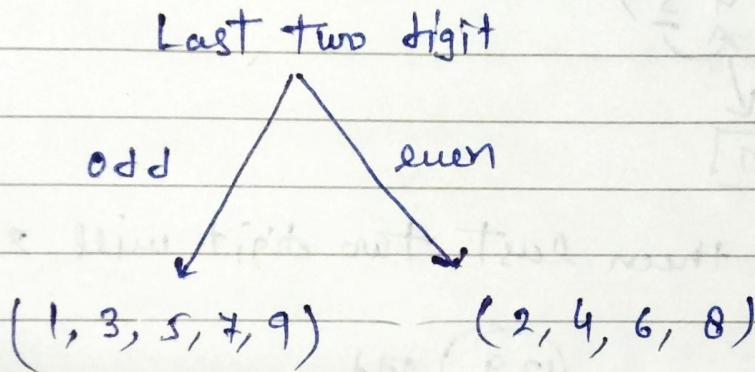 Last two digit
odd even
(1, 3, 5, 7, 9) (2, 4, 6, 8)